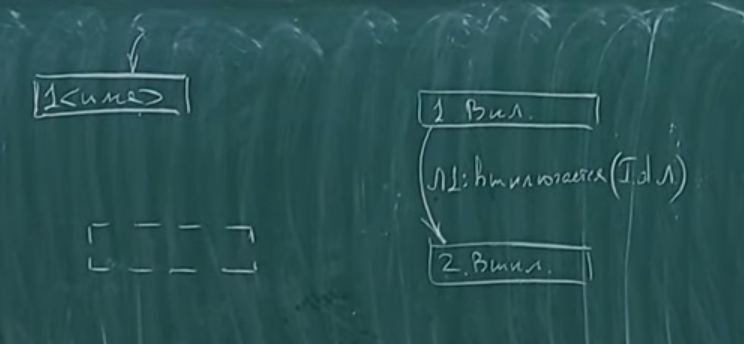 1 <имя>
1 Вкл.
Л1: Выключается (Id Л)
2. Выкл.